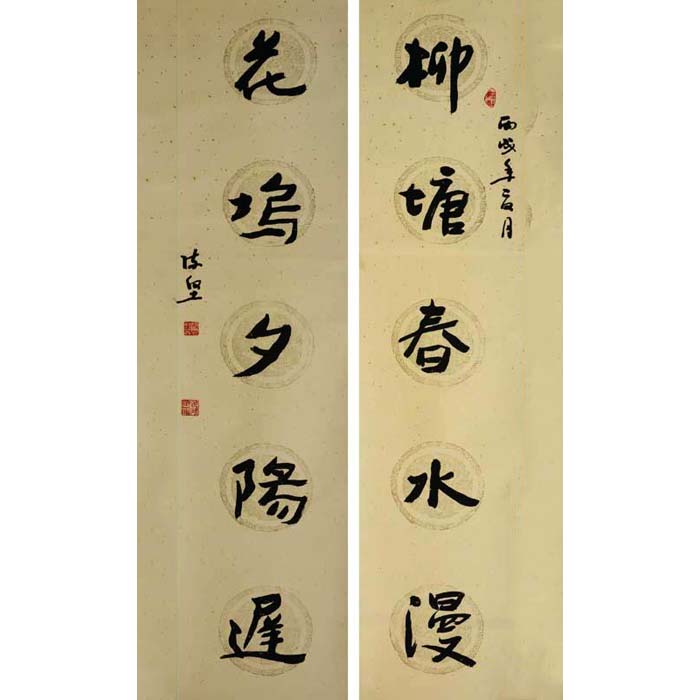 柳塘春水漫
丙戌年二月
花塢夕陽遲